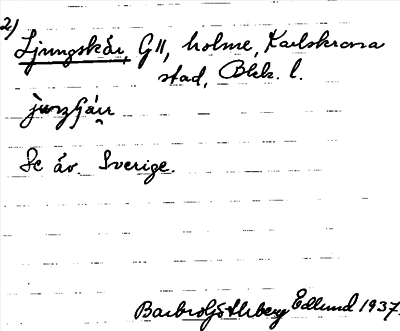 2) Ljungskär, G11, holme, Karlskrona
stad, Blek. l.
Se äv. Sverige.
Barbro Göthberg Edlund 1937.